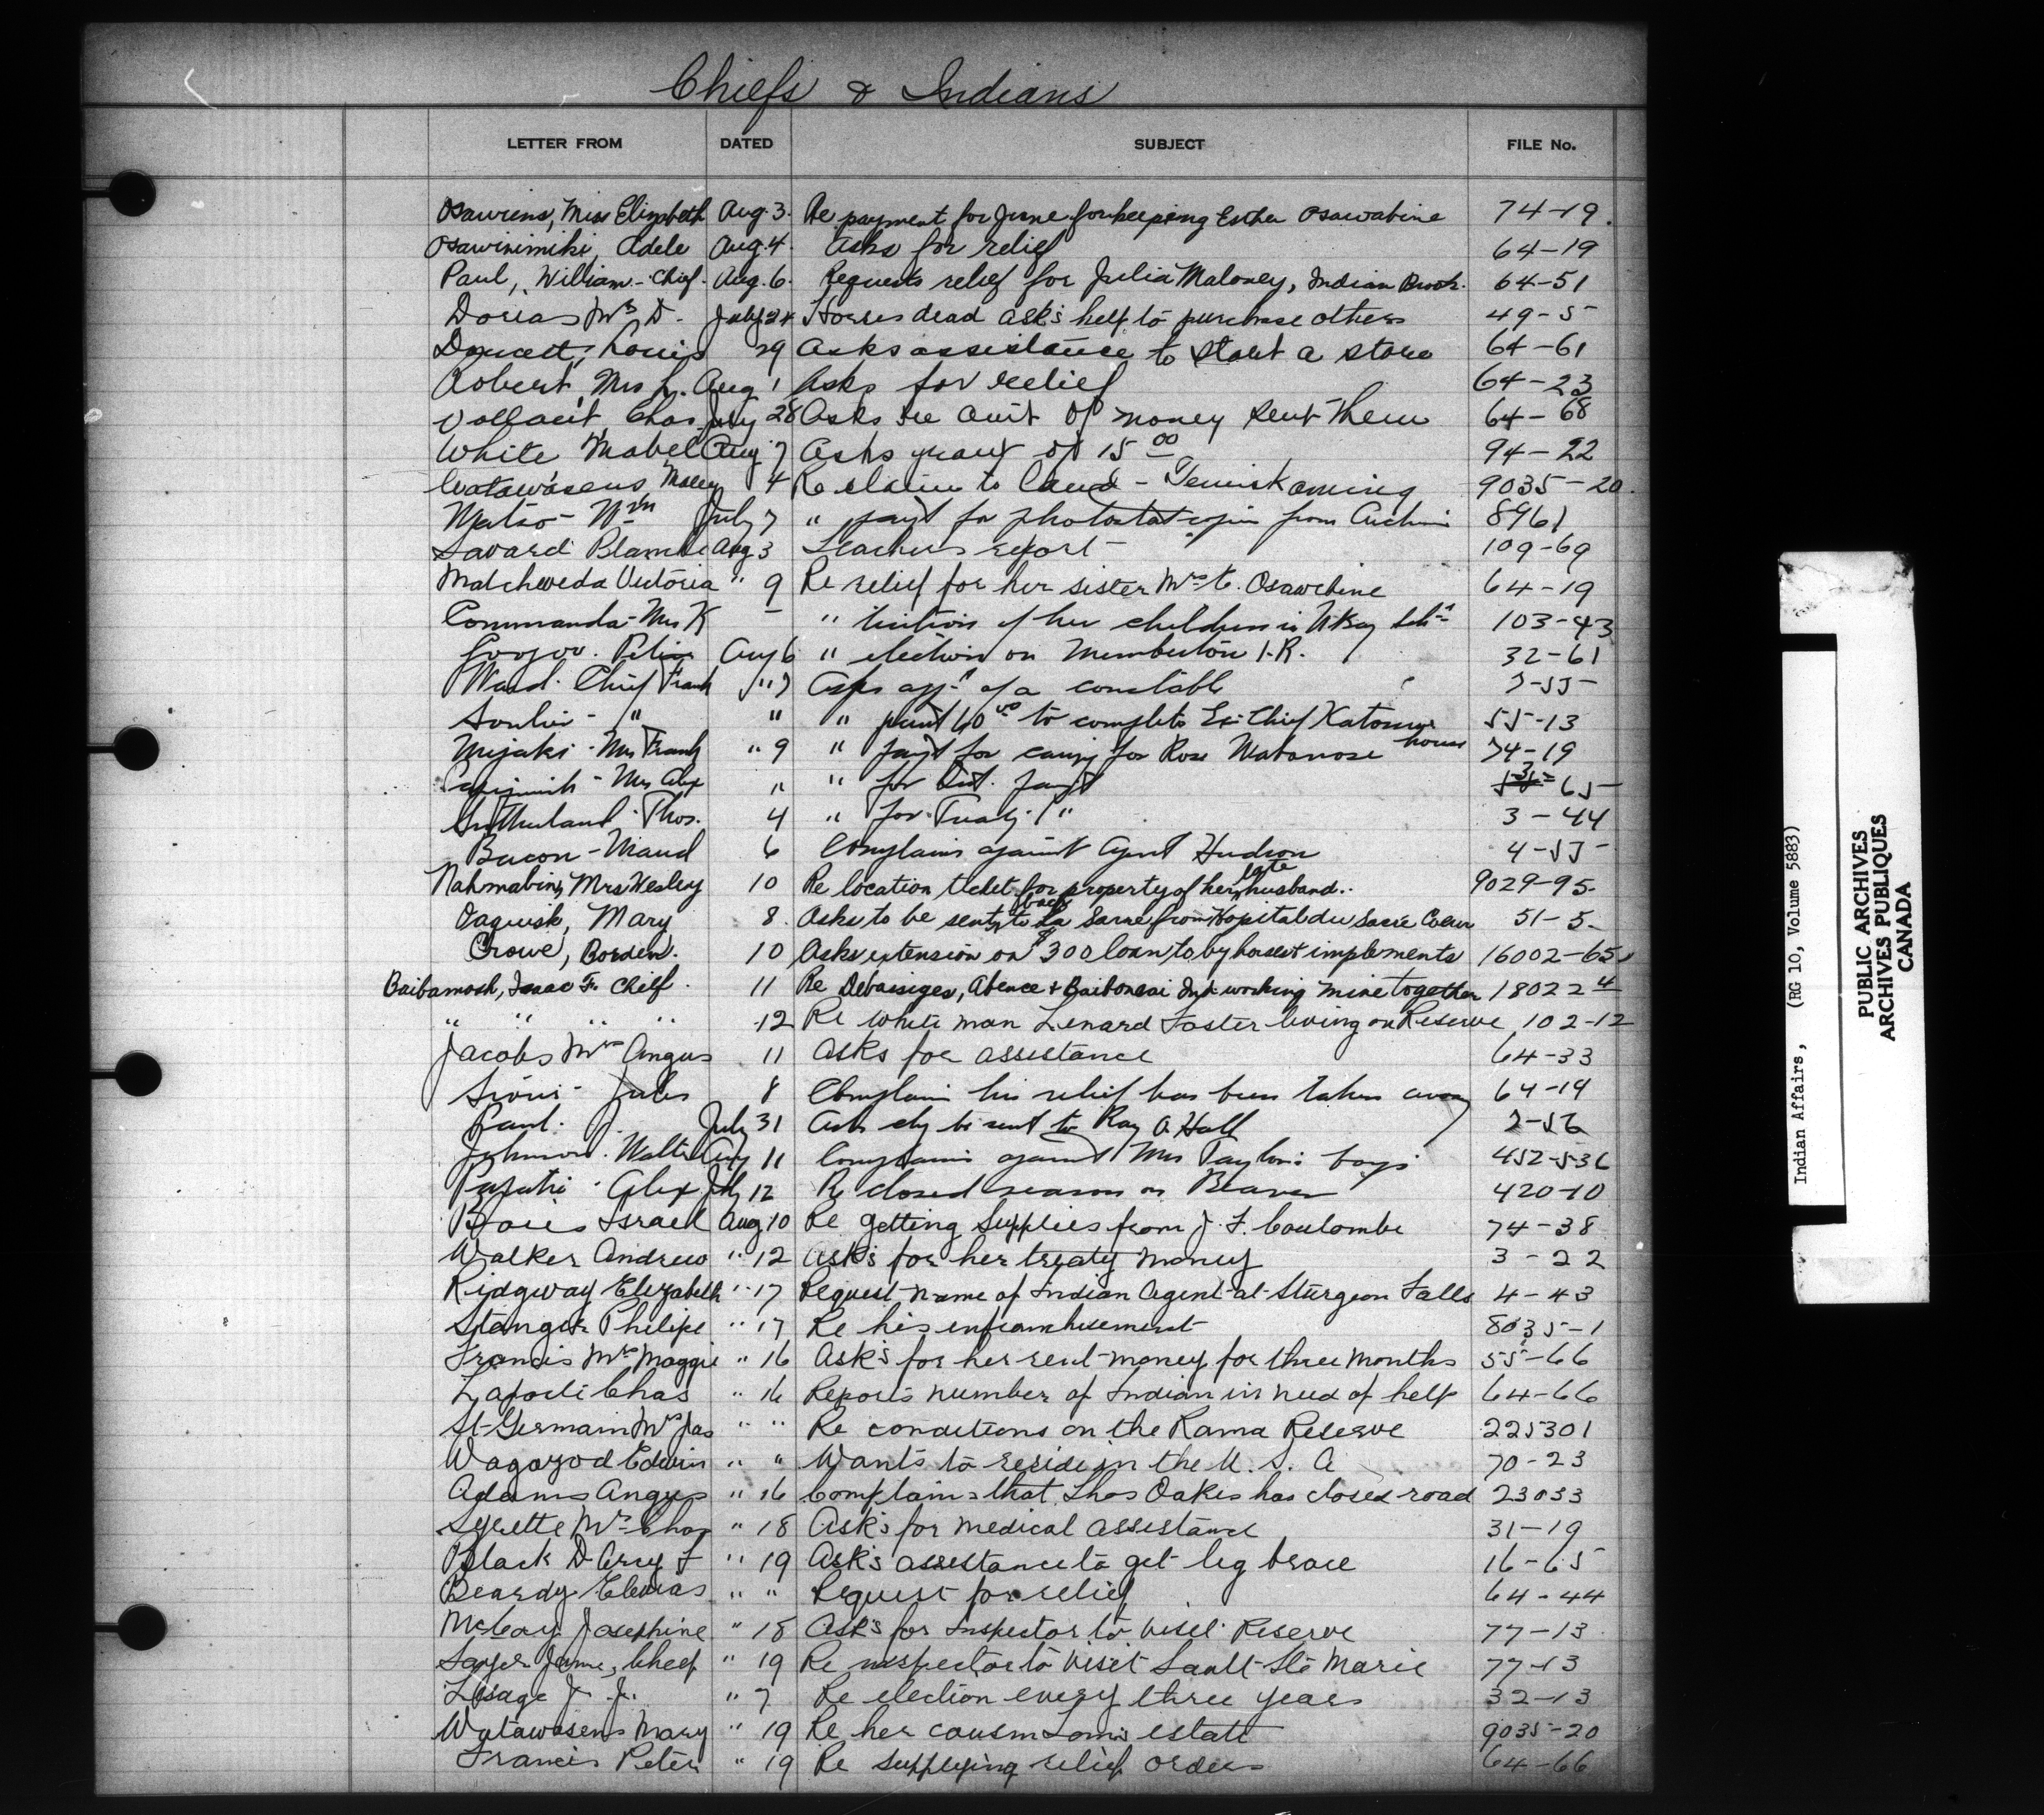 Chiefs & Indians
LETTER FROM DATED SUBJECT FILE No.
Osawiens, Miss Elizabeth Aug. 3. Re payment for June for keeping Esther Osawabine 74-19.
Osawinimiki, Adele Aug. 4. Asks for relief 64-19
Paul, William - Chief. Aug. 6. Requests relief for Julia Maloney, Indian Brook. 64-51
Mrs D. July 24 Horses dead asks help to purchase others 49-5
Doucett, Louis 29 Asks assistance to start a store 64-61
Robert, Mrs L. Aug 1 Asks for relief 64-23
Vollant, Chas July 28 Asks re amt of money sent them 64-68
White Mabel Aug 7 Asks grant of 15 00 94-22
Watawasens, 4 Re claim to land - Temiskaming 9035-20.
Wm July 7 " payt for photostat copies from Archives 8961
Savard Blanche Aug 3 Teachers report 109-69
Matcheweda Victoria " 9 Re relief for her sister Mrs C. Osawabine 64-19
Commanda - Mrs K - " tuition of her children in N Bay Sch 103-43
Aug 6 " election on Pemberton I.R. 32-61
Ward. Chief Frank " 7 Asks appt of a constable 7-55
Soulier - " " " 40 00 to complete Ex-Chief house 55-13
Mijaki - Mrs Frank " 9 " payt for caring for Rose Wabanose 74-19
Mrs Alex " " for Int. payt 65
Sutherland. Thos. 4 " for Treaty " 3-44
Bacon - Maud 6 Complains against Agent Hudson 4-55
Nahmabin, Mrs Wesley 10 Re location ticket for property of her late husband.. 9029-95.
Mary 8. Asks to be sent back to La Sarre from Hopital du Sacré Coeur 51-5.
Crowe, Borden. 10 Asks extension on $300 loan to by horses & implements 16002-65
Baibomosh, Isaac F. Chief. 11 Re Debassiges, Abence & Baibonsai Ind. working mine together 18022 4
" " " " 12 Re white man Lenard Foster living on Reserve 102-12
Jacobs Mrs Angus 11 Asks for assistance 64-33
Sioui - Jules 8 Complains his relief has been taken away 64-19
Paul. J. July 31 Asks chq be sent to Ray A Hall 2-56
Johnson. Walter Aug 11 Complains against Mrs Taylor's boys 452-536
Papatie - Alex July 12 Re closed season on Beaver 420-10
Israel Aug 10 Re getting supplies from J. F. Coulombe 74-38
Walker Andrew " 12 Asks for her treaty money 3-22
Ridgway Elizabeth " 17 Request name of Indian Agent at Sturgeon Falls 4-43
Philipe " 17 Re his enfranchisement 8035-1
Francis Mrs Maggie " 16 Ask's for her rent money for three months 55-66
Chas " 16 Reports number of Indian in need of help 64-66
St-Germain Mrs Jas " " Re conditions on the Rama Reserve 225301
Edwin " " Wants to reside in the U. S. A 70-23
Adams Angus " 16 Complains that Thos Oakes has closed road 23033
Mrs Chas " 18 Ask's for medical assistance 31-19
Black D Arcy F " 19 Ask's assistance to get leg brace 16-65
Beardy " " Request for relief 64-44
McCoy Josephine " 18 Ask's for Inspector to visit Reserve 77-13
Sayer Jame, Chief " 19 Re inspector to visit Sault Ste Marie 77-13
Lesage J. " 7 Re election every three years 32-13
Watawasens Mary " 19 Re her cousin Louis estate 9035-20
Francis Peter " 19 Re supplying relief orders 64-66
Indian Affairs, (RG 10, Volume 5883)
PUBLIC ARCHIVES
ARCHIVES PUBLIQUES
CANADA